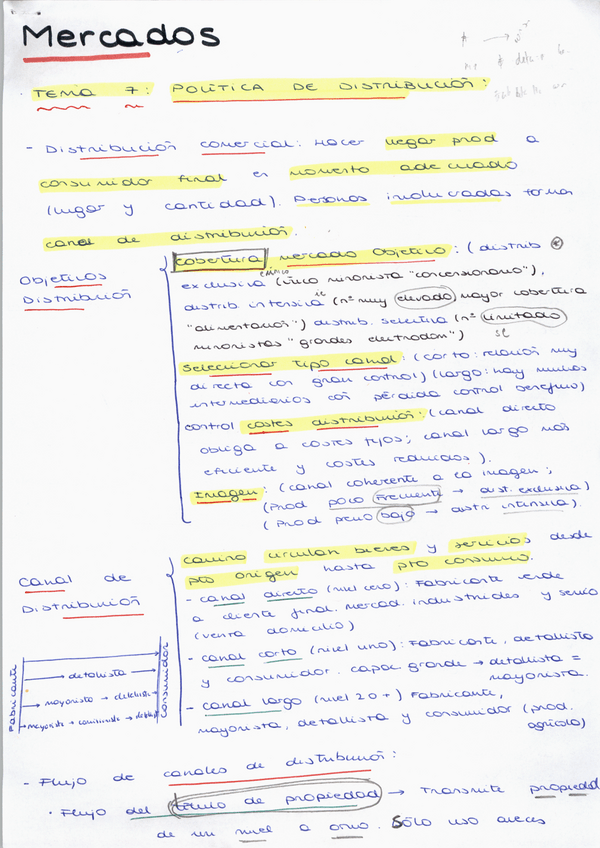 Mercados
· TEMA 7: POLÍTICA DE DISTRIBUCIÓN:
- Distribución comercial: Hacer llegar prod a
consumidor final en momento adecuado
(lugar y cantidad). Personas involucradas forman
canal de distribución.
Objetivos
Distribución
cobertura mercado Objetivo: (distrib
exclusiva (único minorista "concesionario"),
distrib intensiva (nº muy elevado, mayor cobertura
"alimentación") distrib. selectiva (nº limitado
minoristas "grandes electrodom")
Seleccionar tipo canal: (corto: relación muy
directa con gran control) (largo: hay muchos
intermediarios con pérdida control
control costes distribución: (canal directo
obliga a costes fijos; canal largo más
eficiente y costes reducidos).
Imagen: (canal coherente a la imagen;
(Prod poco frecuente → dist. exclusiva)
(Prod precio bajo → distr intensiva).
Canal de
Distribución
camino circulan bienes y servicios desde
pto origen hasta pto consumo.
- canal directo (nivel cero): Fabricante vende
a cliente final. mercad. industriales y servic
(venta domicilio)
- canal corto (nivel uno): Fabricante, detallista
y consumidor. capac grande → detallista =
mayorista.
- canal largo (nivel 2 o +) Fabricante,
mayorista, detallista y consumidor (prod.
agrícola)
Fabricante
→ detallista →
→ mayorista → detallista →
→ mayorista →
Consumidor
- Flujo de canales de distribución:
· Flujo del título de propiedad → Transmite propiedad
de un nivel a otro. Sólo uso a veces